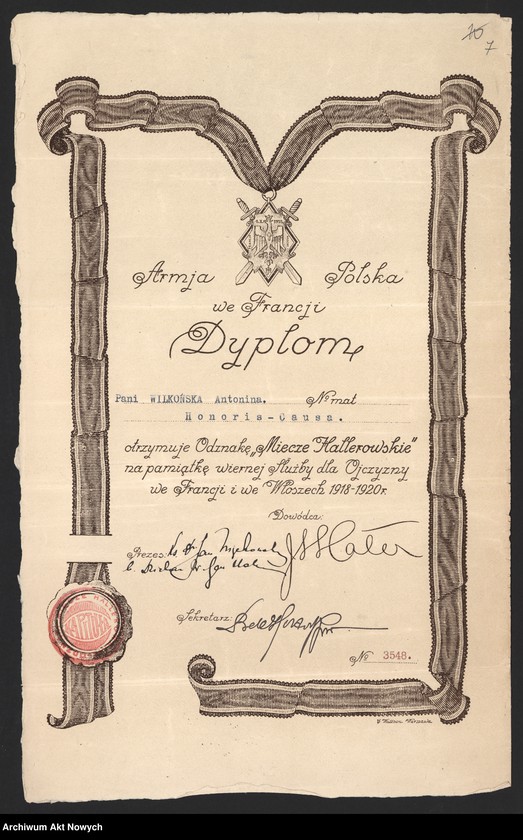 7
Armja Polska
we Francji
Dyplom
Pani WILKOŃSKA Antonina. № mat
Honoris-Causa.
otrzymuje Odznakę „Miecze Hallerowskie"
na pamiątkę wiernej służby dla Ojczyzny
we Francji i we Włoszech 1918-1920r.
Dowódca:
Prezes:
Sekretarz:
№ 3548.
Archiwum Akt Nowych